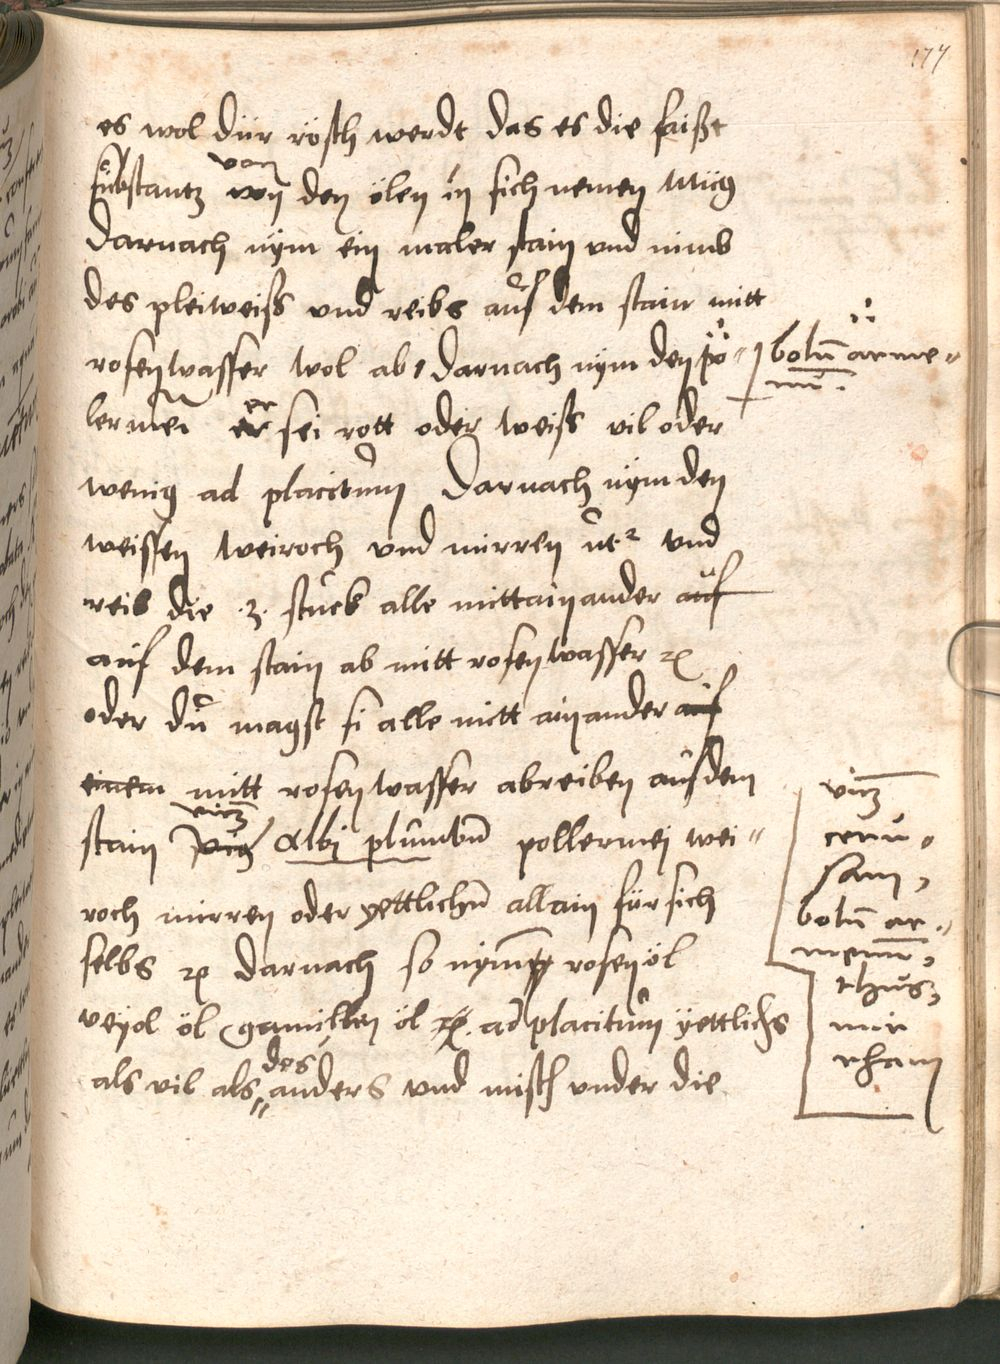 177
es wol dür rösch werde das es die faißt
substantz von den ölen in sich nemen müg
darnach nÿm ein maler stain und nimb
des pleiweiss und reibs auf dem stain mitt
rosenwasser wol ab, darnach nÿm den po"
bolu̅ arme"
niu̅.
lermei er sei rott oder weiss vil oder
wenig ad placitum Darnach nÿm den
weissen weiroch und mirren ut² und
reib die .3. stuck alle mittainander auf
auf dem stain ab mitt rosenwasser ꝛc
oder du magst si alle mitt ainander auf
einem mitt rosenwasser abreiben auf dem
stain vitz albi plumbu̅ pollermei wei"
roch mirren oder yettlichn̅ allain für sich
selbs ꝛc darnach so nÿm rosenöl
veyol öl gamillen öl ad placitum ÿettlichs
als vil als des anders und misch under die
vitz
ceru"
sam,
bolu̅ ar"
menu̅,
thus,
mir
rham